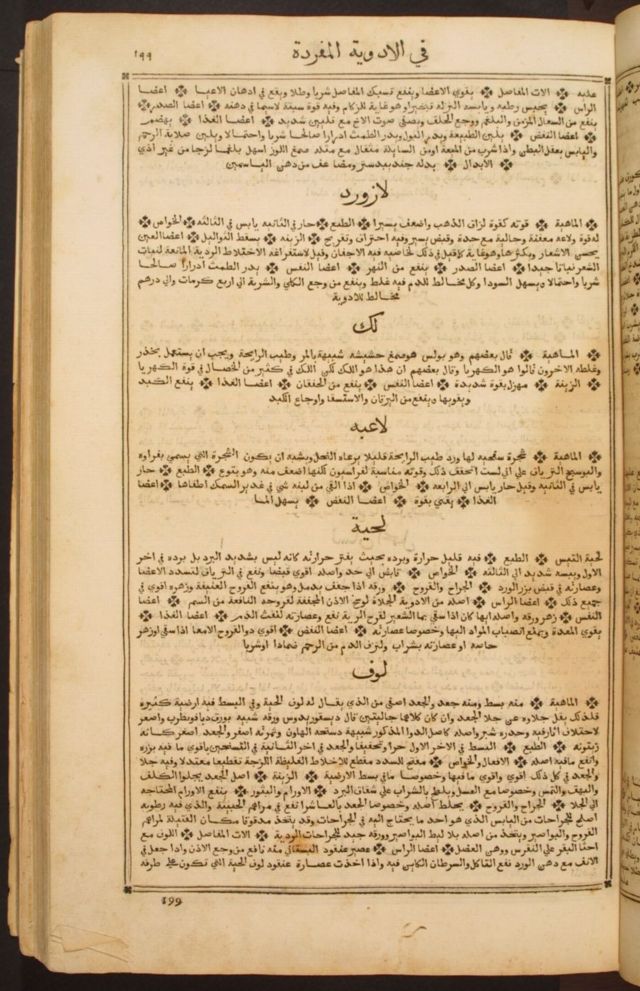 في الادوية المفردة
١٩٩
عذبه الات المفاصل يقوي الاعضا وينفع تسبك المفاصل شربا وطلا ويقع في ادهان الاعيا اعضا
الراس يحبس رطبه ويابسه النزله تبخيرا وهو غاية للزكام وفيه قوة مسبتة لاسيما في دهنه اعضا الصدر
ينفع من السعال المزمن والبلغم ووجع الحلق ويصفي صوت الابح مع تليين شديد اعضا الغذا يهضم
اعضا النفض يلين الطبيعة ويدر البول ويدر الطمث ادرارا صالحا شربا واحتمالا ويلين صلابة الرحم
واليابس يعقل البطن واذا شرب من الميعة اومن السايلة مثقال مع مثله صمغ اللوز اسهل بلغما لزجا من غير اذي
الابدال بدله جندبيدستر ومضاعف من دهن الياسمين
لازورد
الماهية قوته كقوة لزاق الذهب واضعف يسيرا الطبع حار في الثانيه يابس في الثالثه الخواص
له قوة ولاعه معفنة وجالية مع حدة وقبض يسير وفيه احتراق وتقريح الزينه يسقط الثواليل اعضا العين
يحسن الاشفار ويكثرها وهو غاية كما قيل في ذلك لخاصيه فيه الاجفان وقيل لاستفراغه الاختلاط الردية المانعة لنبات
الشعر نباتا جيدا اعضا الصدر ينفع من البهر اعضا النفس يدر الطمث ادرارا صالحا
شربا واحتمالا ويسهل السودا وكل مخالط للدم فيه غلظ وينفع من وجع الكلي والشربة الي اربع كرمات والي درهم
مخالط للادوية
لك
الماهية قال بعضهم وهو بولس هو صمغ حشيشه شبيهة بالمر وطيب الرايحة ويجب ان يستعمل بحذر
وغلطه الاخرون قالوا هو الكهربا وقال بعضهم ان هذا هو اللك لكن اللك في كثير من الخصال في قوة الكهربا
الزينة مهزل بقوة شديدة اعضا النفس ينفع من الخفقان اعضا الغذا ينفع الكبد
ويقويها وينفع من اليرقان والاستسقا واوجاع الكبد
لاعبه
الماهية شجرة سفحيه لها ورد طيب الرايحة قليلا يرعاه النحل ويشبه ان يكون الشجرة التي يسمي بفراوه
والبوسنج الترياق علي اني لست اتحقق ذلك وقوته مناسبة لفراسيون لكنها اضعف منه وهو يتوع الطبع حار
يابس في الثانيه وقيل حار يابس الي الرابعه الخواص اذا القي من لبنه شي في غدير السمك اطفاها اعضا
الغذا يقي بقوه اعضا النفض يسهل الما
لحية
لحية التيس الطبع فيه قليل حرارة وبرده بحيث يفتر حرارته كانه ليس بشديد البرد بل برده في اخر
الاول ويبسه شديد الي الثالثه الخواص قابض الي حد واصله اقوي قبضا ونفع في الترياق لتشدد الاعضا
وعصارته في قبض بزر الورد الجراح والقروح ورقه اذا جفف يدمل وهو ينفع القروح العتيقة وزهره اقوي في
جميع ذلك اعضا الراس اصله من الادوية الجلاة لوجع الاذن المجففة لقروحه النافعة من السم اعضا
النفس زهر ورقه واصله ايها كان اذا سقي بما الشعير لقرح الرية نفع وعصارته لنفث الدم اعضا الغذا
يقوي المعدة ويمنع انصباب المواد اليها وخصوصا عصارته اعضا النفض اقوي دوا لقروح الامعا اذا سقي اوزهر
حاسه او عصارته بشراب ولنزف الدم من الرحم ضمادا اوشربا
لوف
الماهية منه بسط ومنه جعد والجعد اصفي من الذي يقال له لوف الحية وفي البسط فيه ارضية كثيره
فلذلك يقل جلاوه عن جلا الجعد وان كان كلاهما جاليتين قال ديسقوريدوس ورقه شبيه بورق دياقونطرب واصغر
لاختلاف اثار فيه وحدره شبر واصله كاصل الدوا المذكور شبيهة دستجه الهاون وثمرته اصفر والجعد اصغر كانه
زيتونه الطبع البسط في الاخر الاول حرا وتجفيفا والجعد في اخر الثانية في التسخين يا قوي ما فيه بزره
وانفع مافيه اصله الافعال والخواص مفتح للسدد مقطع للاخلاط الغليظة اللزجة تقطيعا معتدلا وفيه جلا
والجعد في كل ذلك اقوي واقوي ما فيها وخصوصا ما في بسط الارضية الزينة اصل الجعد يجلوا الكلف
والبهق والنمش وخصوصا مع العسل ويلط بالشراب علي شقاق البرد الاورام والبثور ينفع الاورام المحتاجه
الي الجلا الجراح والقروح يخلط اصله وخصوصا الجعد بالعاشرا نفع في مراهم الخبيثة والذي فيه رطوبه
اصلح للجراحات من اليابس الذي هو احد ما يحتاج اليه في الجراحات وقد يتخذ مدقوقا مكان الفتيلة لمراهم
القروح والبواصير ويتخذ من اصله بلا ليط البواسير وورقه جيد للجراحات الردية الات المفاصل اللون مع
اخثا البقر علي النقرس ووهن العضل اعضا الراس عصير عنقود البستاني منه نافع من وجع الاذن واذا جعل في
الانف مع دهن الورد نفع القاكل والسرطان الكاين فيه واذا اخذت عصارة عنقود لوف الحية التي تكون علي طرفه
199